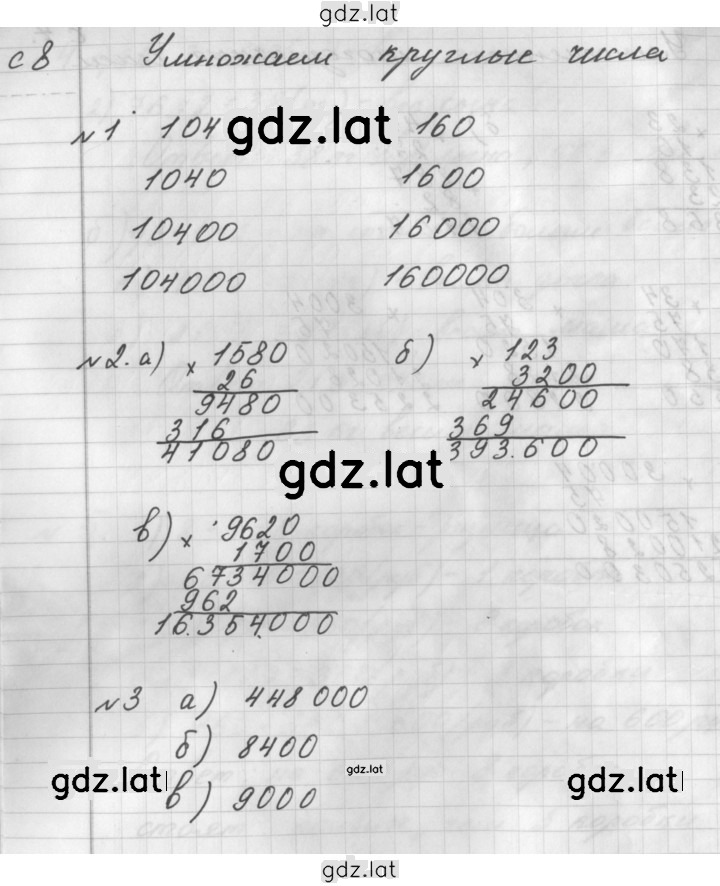 gdz.lat
с 8 Умножаем круглые числа
№1 104 160
gdz.lat
1040 1600
10400 16000
104000 160000
№2. а) × 1580 б) × 123
26 3200
9480 24600
316 369
41080 393.600
gdz.lat
в) × 9620
1700
6734000
962
16.354.000
№3 а) 448000
б) 8400
gdz.lat gdz.lat gdz.lat
в) 9000
gdz.lat